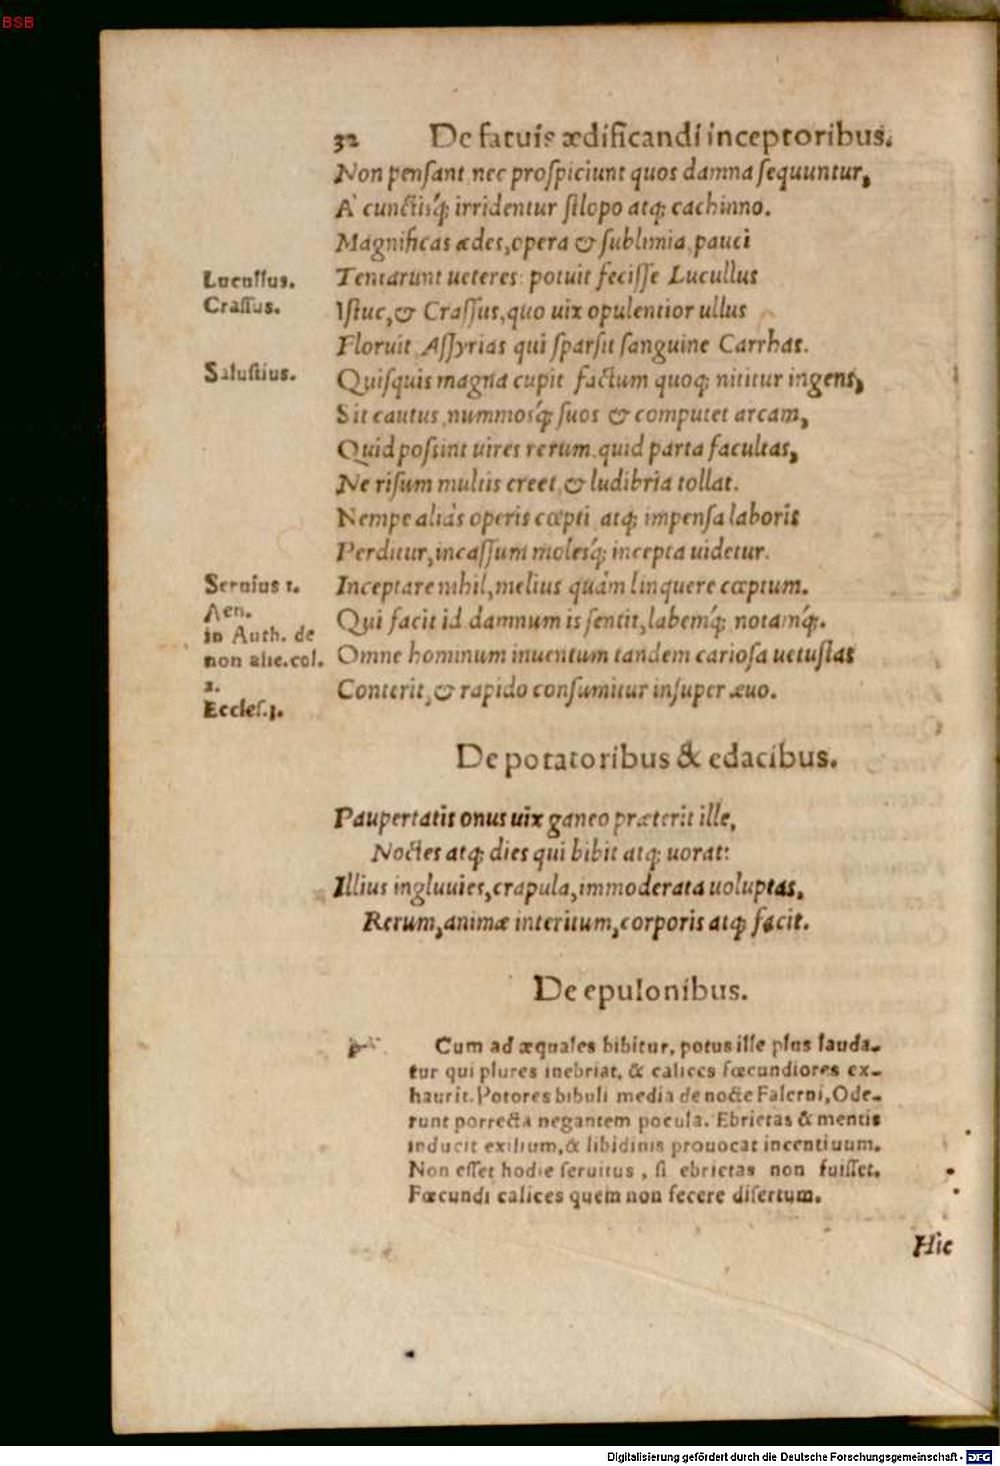 BSB
32 De fatuis ædificandi inceptoribus.
Non pensant nec prospiciunt quos damna sequuntur,
A' cunctisq́; irridentur stlopo atq; cachinno.
Magnificas ædes, opera & sublimia pauci
Lucullus.
Tentarunt ueteres: potuit fecisse Lucullus
Crassus.
Istuc, & Crassus, quo uix opulentior ullus
Floruit, Assyrias qui sparsit sanguine Carrhas.
Salustius.
Quisquis magna cupit factum quoq; nititur ingens,
Sit cautus, nummosq́; suos & computet arcam,
Quid possint uires rerum, quid parta facultas,
Ne risum multis creet, & ludibria tollat.
Nempe aliàs operis cœpti atq; impensa laboris
Perditur, incassum molesq́; incepta uidetur.
Seruius 1.
Inceptare nihil, melius quàm linquere cœptum.
Aen.
in Auth. de
Qui facit id damnum is sentit, labemq́; notamq́;.
non alie. col.
Omne hominum inuentum tandem cariosa uetustas
2.
Conterit, & rapido consumitur insuper æuo.
Eccles. 1.
De potatoribus & edacibus.
Paupertatis onus uix ganeo præterit ille,
Noctes atq; dies qui bibit atq; uorat:
Illius ingluuies, crapula, immoderata uoluptas,
Rerum, animæ interitum, corporis atq; facit.
De epulonibus.
Cum ad æquales bibitur, potus ille plus lauda-
tur qui plures inebriat, & calices fœcundiores ex-
haurit. Potores bibuli media de nocte Falerni, Ode-
runt porrecta negantem pocula. Ebrietas & mentis
inducit exilium, & libidinis prouocat incentiuum.
Non esset hodie seruitus, si ebrietas non fuisset.
Fœcundi calices quem non fecere disertum.
Hic
Digitalisierung gefördert durch die Deutsche Forschungsgemeinschaft - DFG